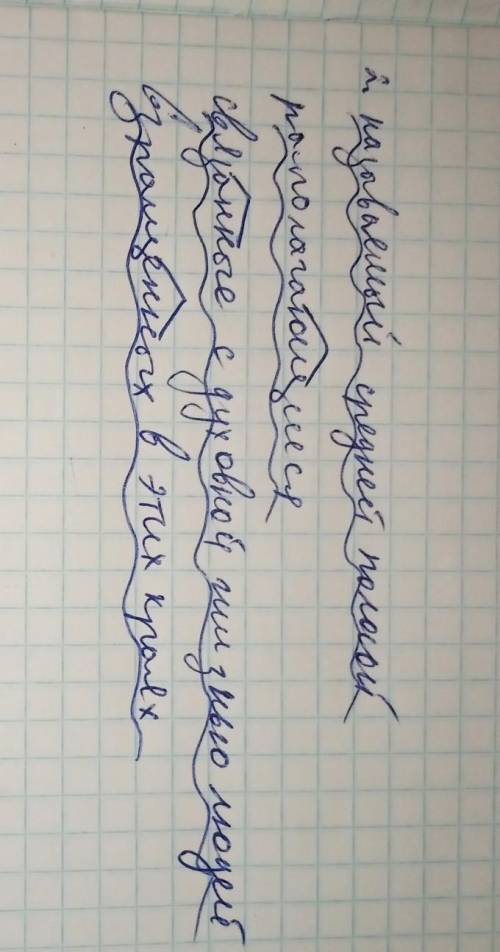 2. называемый средней полосой
располагающиеся
связанные с духовной жизнью людей
взрощенных в этих краях